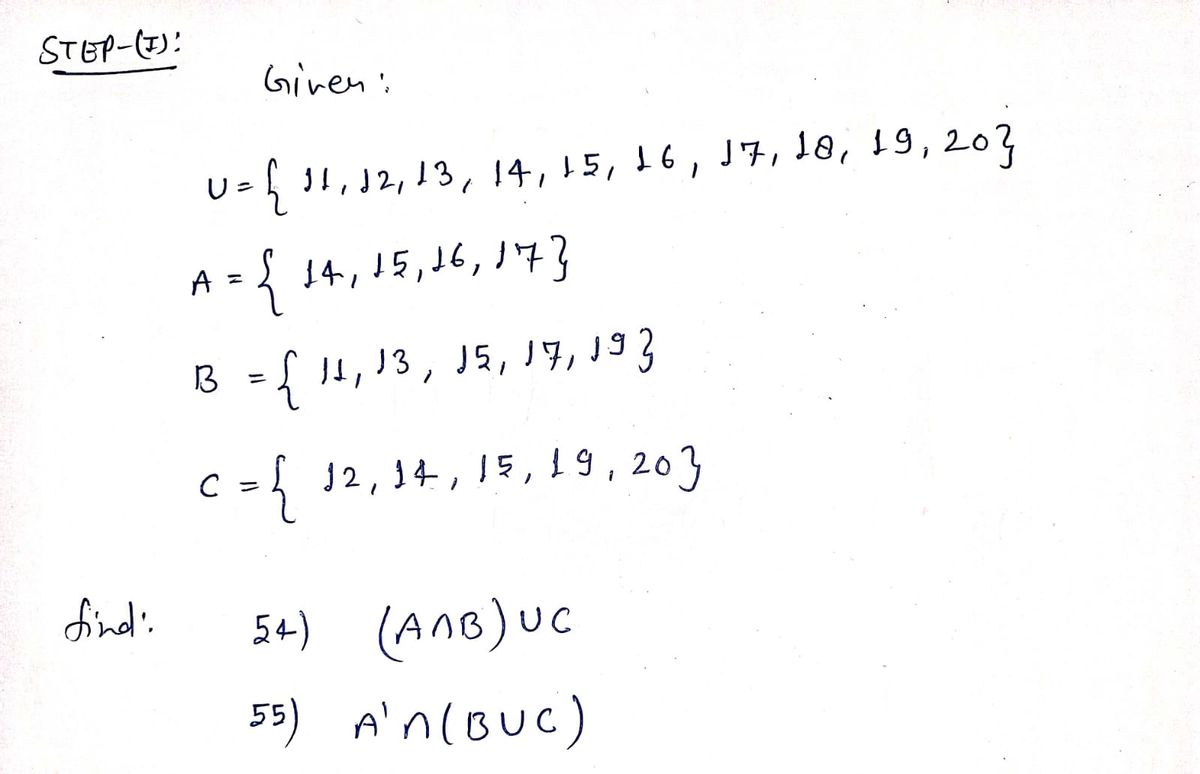 STEP-(I):
Given:
U = { 11, 12, 13, 14, 15, 16, 17, 18, 19, 20}
A = { 14, 15, 16, 17}
B = { 11, 13, 15, 17, 19}
C = { 12, 14, 15, 19, 20}
find: 54) (A∩B)∪C
55) A'∩(B∪C)